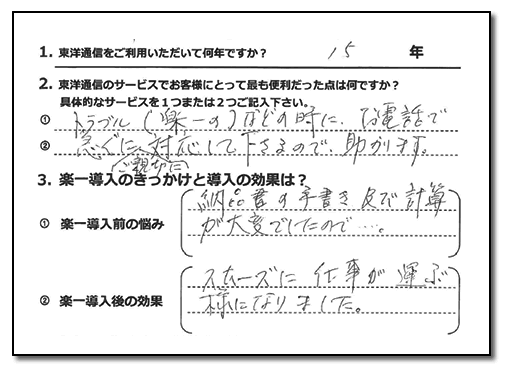 1. 東洋通信をご利用いただいて何年ですか？ 15 年
2. 東洋通信のサービスでお客様にとって最も便利だった点は何ですか？
具体的なサービスを１つまたは２つご記入下さい。
① トラブル（楽一の）などの時に、お電話で
② 急ぐに、対応して下さるので、助かります。
ご親切に
3. 楽一導入のきっかけと導入の効果は？
① 楽一導入前の悩み
納品書の手書き及び計算
が大変でしたので…。
② 楽一導入後の効果
スムーズに仕事が運ぶ
様になりました。